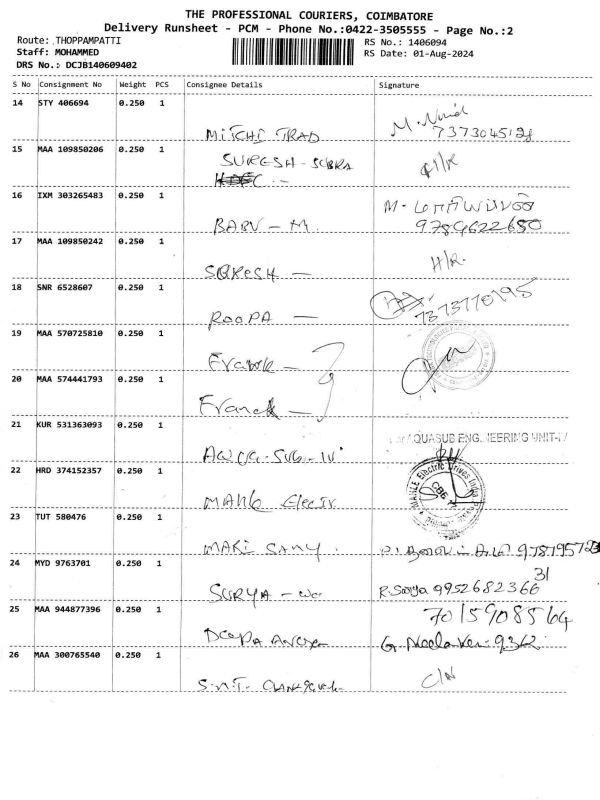 THE PROFESSIONAL COURIERS, COIMBATORE
Delivery Runsheet - PCM - Phone No.:0422-3505555 - Page No.:2
Route: .THOPPAMPATTI
RS No.: 1406094
Staff: MOHAMMED
RS Date: 01-Aug-2024
DRS No.: DCJB140609402
S No Consignment No Weight PCS Consignee Details Signature
14 STY 406694 0.250 1
MITCHI TRAD
7373045128
15 MAA 109850206 0.250 1
SURESH - SUBRA
16 IXM 303265483 0.250 1
BABU - M.
9789622680
17 MAA 109850242 0.250 1
H/R.
SURESH -
18 SNR 6528607 0.250 1
ROOPA -
7373770195
19 MAA 570725810 0.250 1
Frank -
20 MAA 574441793 0.250 1
Franck -
21 KUR 531363093 0.250 1
AQUASUB ENGINEERING UNIT-IV
Aqua-Sub-IV
22 HRD 374152357 0.250 1
MAHLE Electric Drives India
Mahle Electr.
23 TUT 580476 0.250 1
MARI SAMY.
24 MYD 9763701 0.250 1
SURYA -
R. Surya 9952682366
31
25 MAA 944877396 0.250 1
7015908564
Deepa
26 MAA 300765540 0.250 1
C/N
S.N.T.